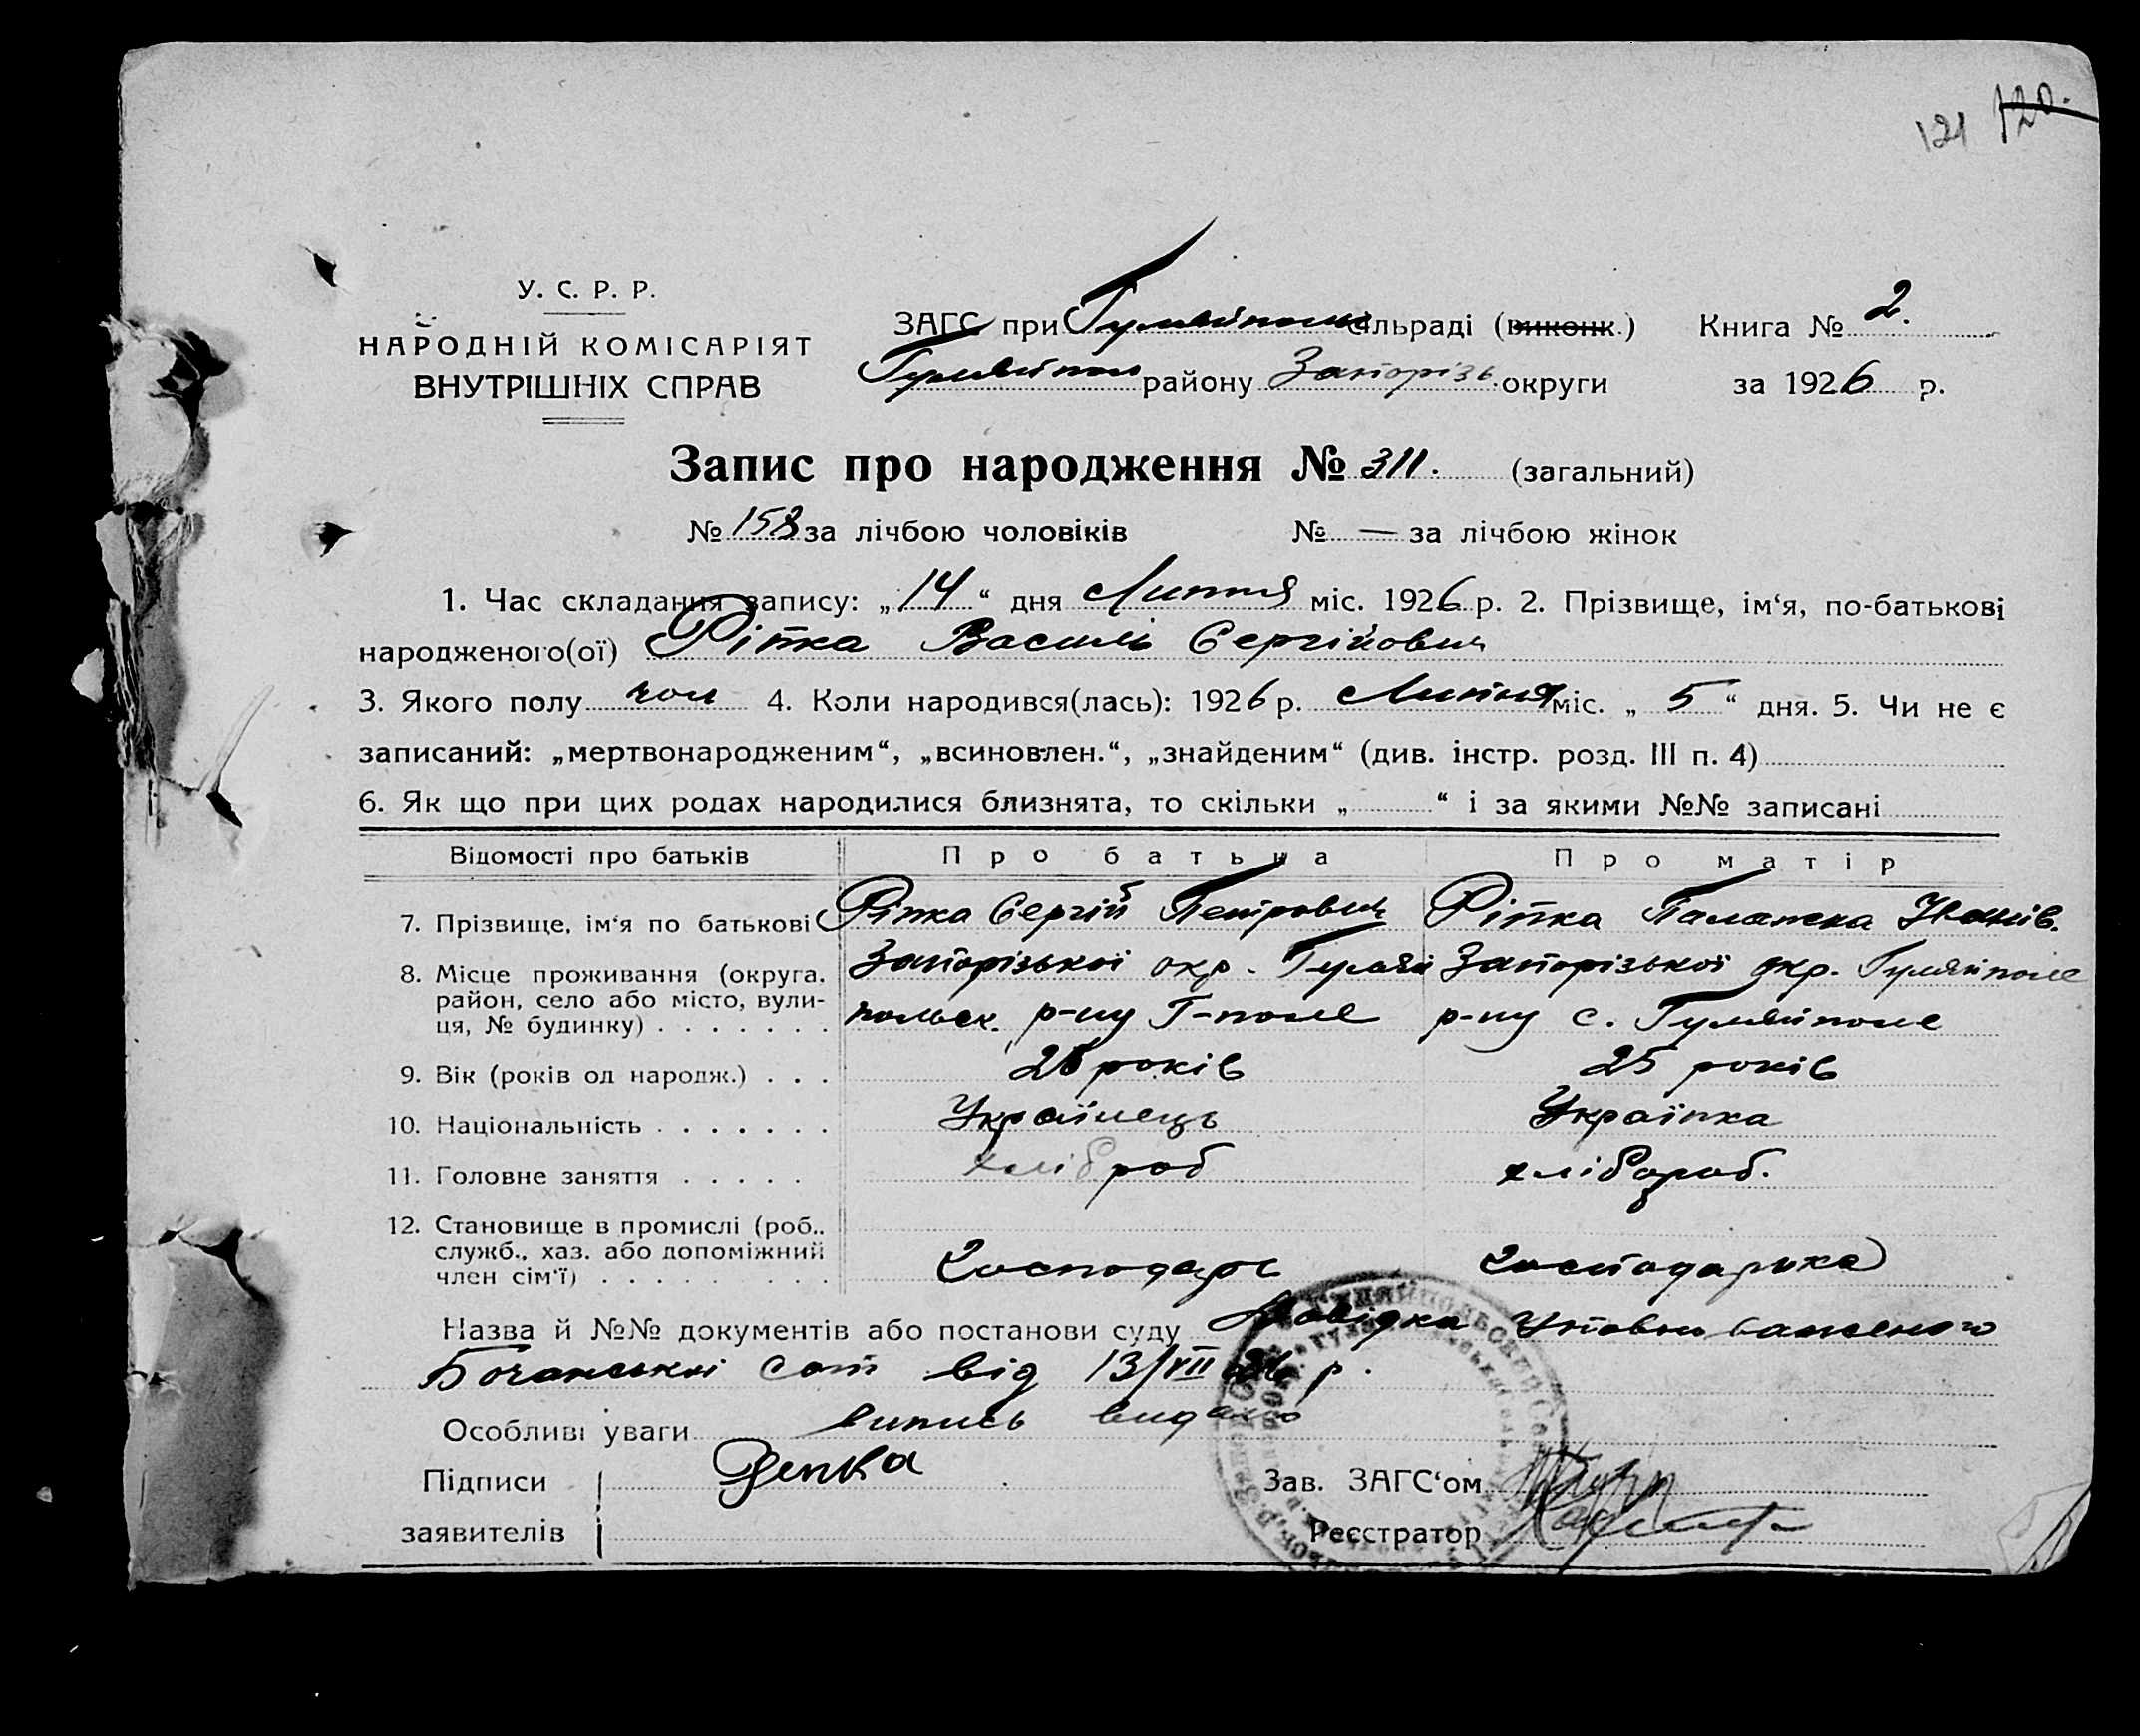 121 120.
У. С. Р. Р.
НАРОДНІЙ КОМІСАРІЯТ
ВНУТРІШНІХ СПРАВ
ЗАГС при Гуляйпольс сільраді (виконк.) Книга № 2.
Гуляйпол району Запорізь. округи за 1926 р.
Запис про народження № 311. (загальний)
№ 158 за лічбою чоловіків № — за лічбою жінок
1. Час складання запису: „14“ дня Липня міс. 1926 р. 2. Прізвище, ім‘я, по-батькові
народженого(ої) Ріпка Василь Сергійович
3. Якого полу чол 4. Коли народився(лась): 1926 р. Липня міс. „5“ дня. 5. Чи не є
записаний: „мертвонародженим“, „всиновлен.“, „знайденим“ (див. інстр. розд. III п. 4)
6. Як що при цих родах народилися близнята, то скільки „ “ і за якими №№ записані
Відомості про батьків Про батька Про матір
7. Прізвище, ім‘я по батькові Ріпка Сергій Петрович Ріпка Палажка Іванів.
8. Місце проживання (округа, Запорізької окр. Гуляй Запорізької окр. Гуляйполе
район, село або місто, вули-
ця, № будинку) польск. р-ну Г-поле р-ну с. Гуляйполе
9. Вік (років од народж.) 26 років 25 років
10. Національність Українець Українка
11. Головне заняття хліброб хлібороб.
12. Становище в промислі (роб.,
служб., хаз. або допоміжний
член сім‘ї) Господарь господарька
Назва й №№ документів або постанови суду Довідка Уповноваженого
Бочанської сот від 13/VII 26 р.
Особливі уваги випись видано
Підписи Репка Зав. ЗАГС‘ом
заявителів Реєстратор